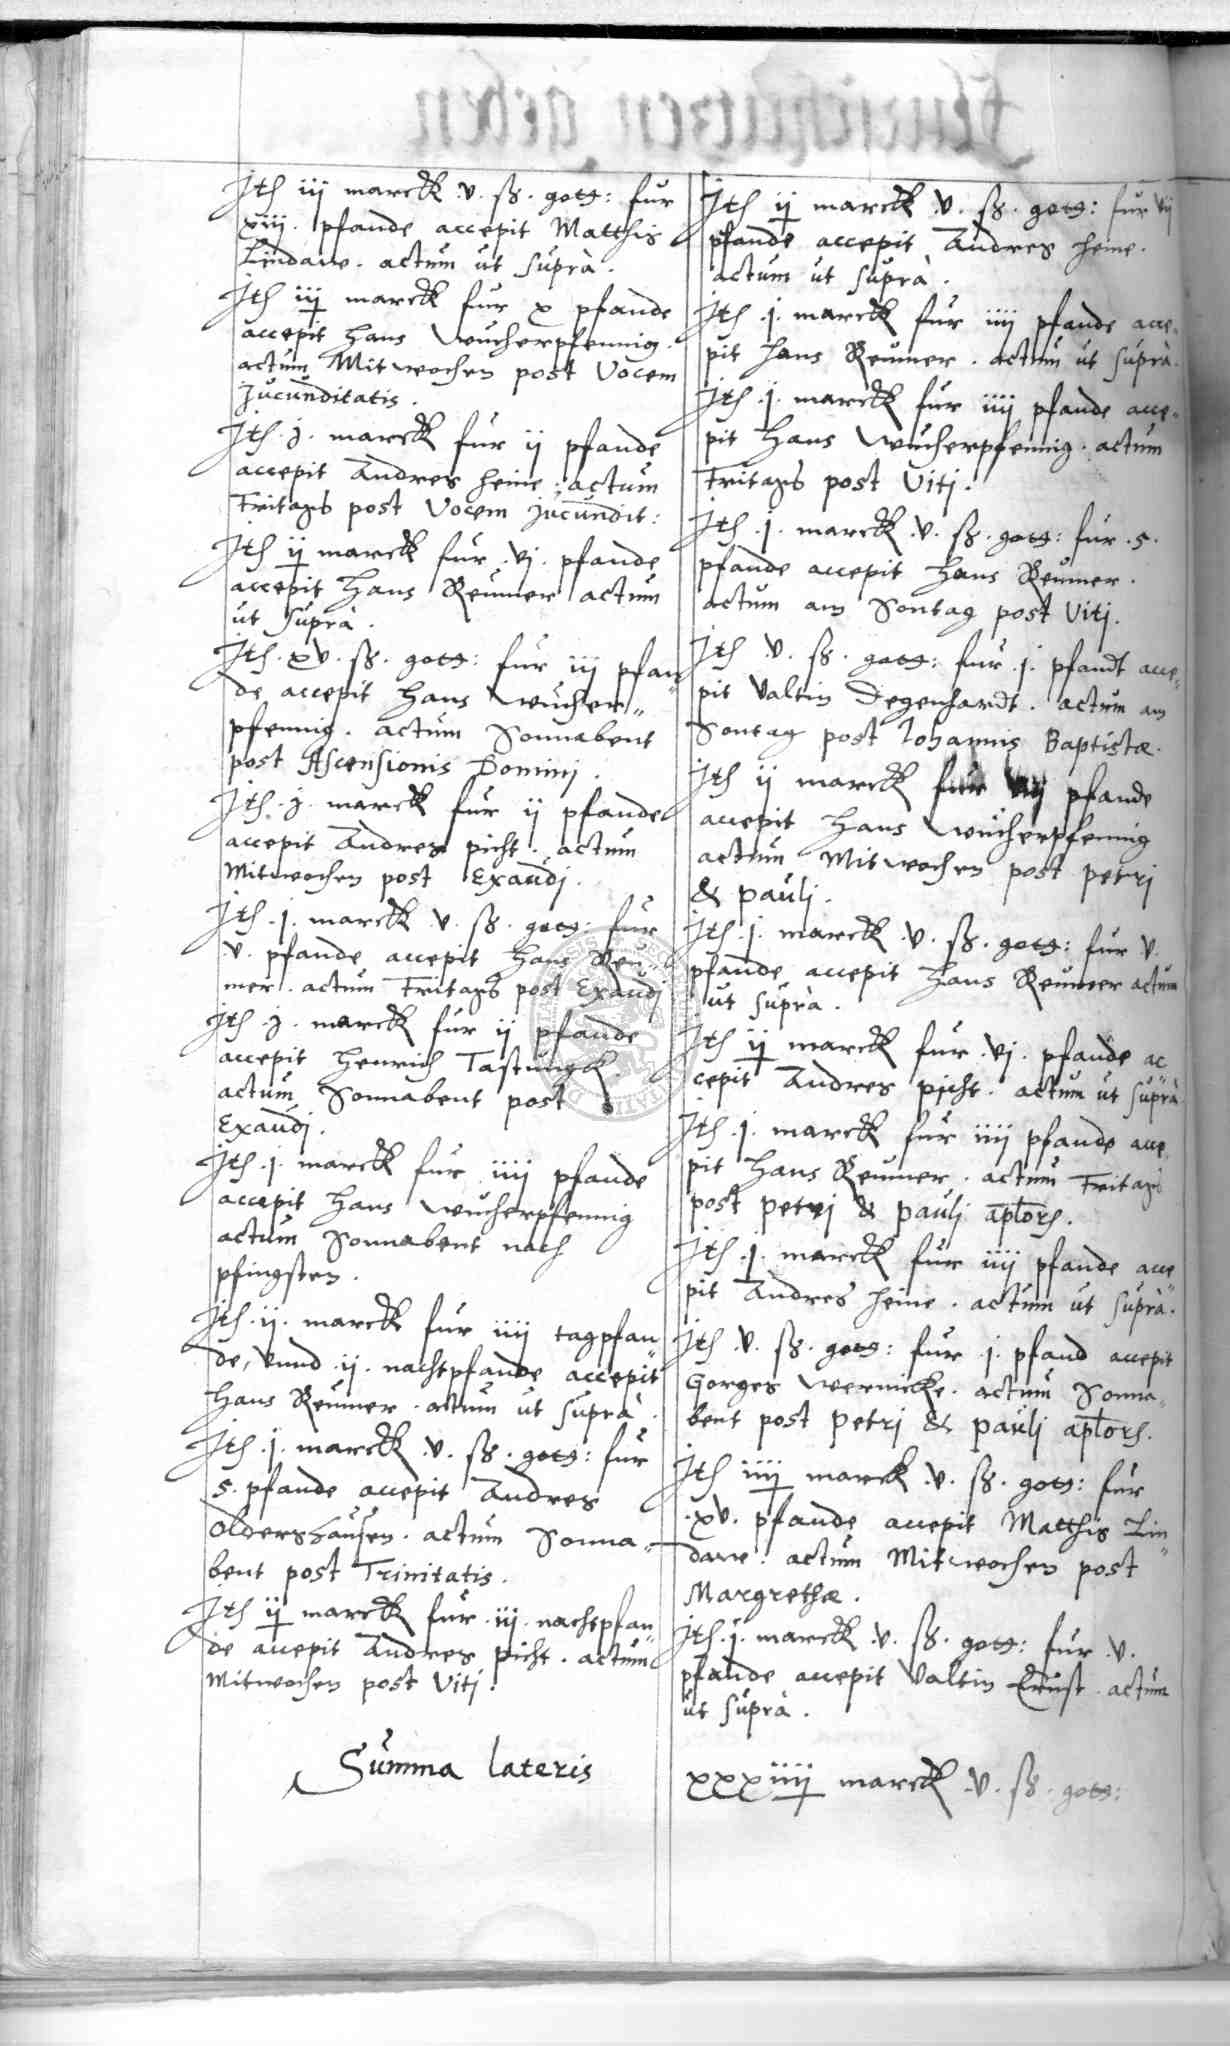 Jtē iij marckk .v. ß. gotß: fur
xiij. pfande accepit Matthis
Lindaw. actum ut suprà.
Jtē iij marckk fur x pfande
accepit Hans Wucherpfennig.
actum Mitwochen post Vocem
Jucunditatis.
Jtē .j. marckk fur ij pfande
accepit Andres Heine. actum
Fritags post Vocem Jucundit:
Jtē ij marckk fur .vj. pfande
accepit Hans Reumer actum
ut suprà.
Jtē .xv. ß. gotß: fur iij pfan„
de accepit Hans Wucher„
pfennig. actum Sonnabent
post Ascensionis Dominj.
Jtē .j. marckk fur ij pfande
accepit Andres picht. actum
Mitwochen post Exaudj.
Jtē .j. marckk .v. ß. gotß: fur
.v. pfande accepit Hans Reu„
mer. actum Fritags post Exaudj
Jtē .j. marckk fur ij pfande
accepit Henrich Tastungk.
actum Sonnabent post
Exaudj.
Jtē .j. marckk fur iiij pfande
accepit Hans Wucherpfennig
actum Sonnabent nach
pfingsten.
Jtē .ij. marckk fur iiij tagpfan„
de, vnnd .ij. nachtpfande accepit
Hans Reumer. actum ut suprà.
Jtē .j. marckk .v. ß. gotß: fur
5. pfande accepit Andres
Oldershausen. actum Sonna„
bent post Trinitatis.
Jtē ij marckk fur .iij. nachtpfan„
de accepit Andres picht. actum
Mitwochen post Vitj.
Summa lateris
Jtē ij marckk .v. ß. gotß: fur vij
pfande accepit Andres Heine.
actum ut suprà.
Jtē .j. marckk fur iiij pfande acce„
pit Hans Reumer. actum ut suprà.
Jtē .j. marckk fur iiij pfande acce„
pit Hans Wucherpfennig. actum
Fritags post Vitj.
Jtē .j. marckk .v. ß. gotß: fur .5.
pfande accepit Hans Reumer.
actum am Sontag post Vitj.
Jtē .v. ß. gotß: fur .j. pfandt acce„
pit Valtin Degenhardt. actum am
Sontag post Johannis Baptistæ.
Jtē ij marckk fur pfande
accepit Hans Wucherpfennig
actum Mitwochen post Petrj
& paulj.
Jtē .j. marckk .v. ß. gotß: fur v.
pfande accepit Hans Reumer actum
ut suprà.
Jtē ij marckk fur .vj. pfande ac„
cepit Andres picht. actum ut suprà
Jtē .j. marckk fur iiij pfande acce„
pit Hans Reumer. actum Fritags
post Petrj & paulj aptorē.
Jtē .j. marckk fur iiij pfande acce„
pit Andres Heine. actum ut suprà.
Jtē .v. ß. gotß: fur .j. pfand accepit
Gorges Wernicke. actum Sonna„
bent post Petrj & paulj aptorē.
Jtē iiij marckk .v. ß. gotß: fur
.xv. pfande accepit Matthis Lin„
daw. actum Mitwochen post
Margrethæ.
Jtē .j. marckk .v. ß. gotß: fur .v.
pfande accepit Valtin Ernst. actum
ut suprà.
xxxiiij marckk .v. ß. gotß: